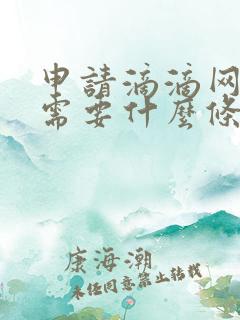 申請滴滴网
需要什麼條
康海潮
未经同意禁止转载